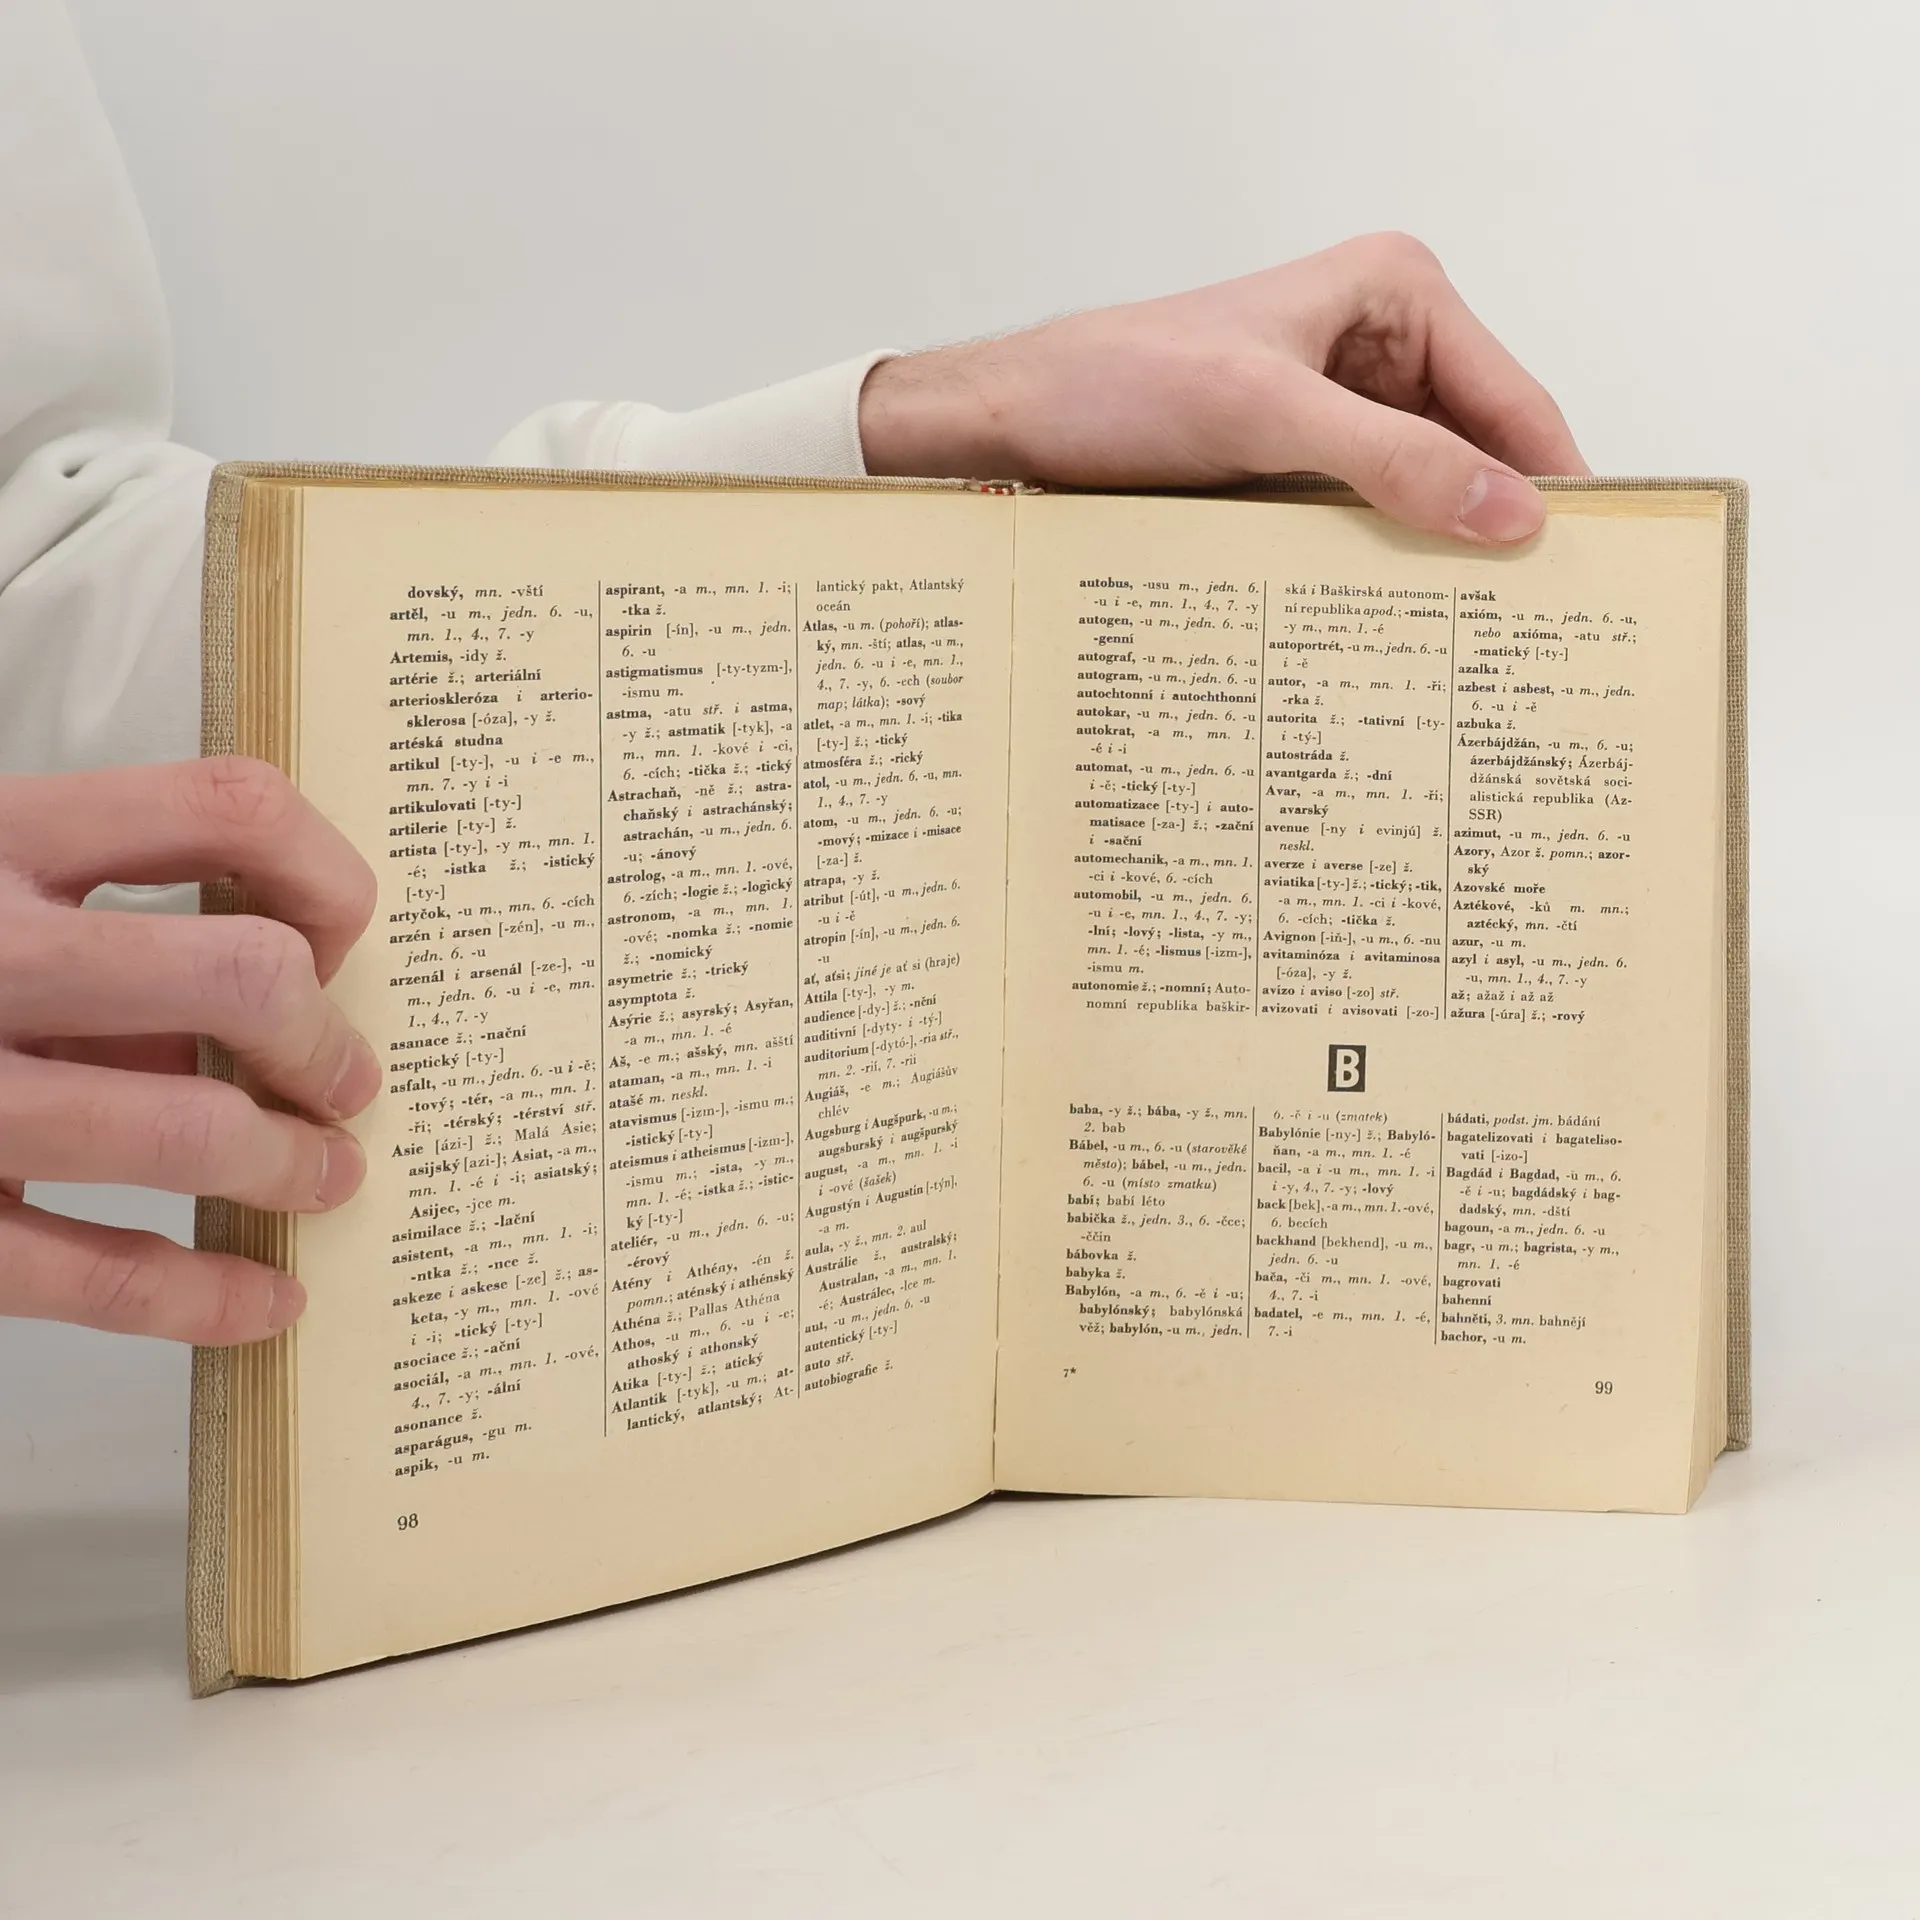 dovský, mn. -vští
artěl, -u m., jedn. 6. -u,
mn. 1., 4., 7. -y
Artemis, -idy ž.
artérie ž.; arteriální
arterioskleróza i arterio-
sklerosa [-óza], -y ž.
artéská studna
artikul [-ty-], -u i -e m.,
mn. 7. -y i -i
artikulovati [-ty-]
artilerie [-ty-] ž.
artista [-ty-], -y m., mn. 1.
-é; -istka ž.; -istický
[-ty-]
artyčok, -u m., mn. 6. -cích
arzén i arsen [-zén], -u m.,
jedn. 6. -u
arzenál i arsenál [-ze-], -u
m., jedn. 6. -u i -e, mn.
1., 4., 7. -y
asanace ž.; -nační
aseptický [-ty-]
asfalt, -u m., jedn. 6. -u i -ě;
-tový; -tér, -a m., mn. 1.
-ři; -térský; -térství stř.
Asie [ázi-] ž.; Malá Asie;
asijský [azi-]; Asiat, -a m.,
mn. 1. -é i -i; asiatský;
Asijec, -jce m.
asimilace ž.; -lační
asistent, -a m., mn. 1. -i;
-ntka ž.; -nce ž.
askeze i askese [-ze] ž.; as-
keta, -y m., mn. 1. -ové
i -i; -tický [-ty-]
asociace ž.; -ační
asociál, -a m., mn. 1. -ové,
4., 7. -y; -ální
asonance ž.
asparágus, -gu m.
aspik, -u m.
aspirant, -a m., mn. 1. -i;
-tka ž.
aspirin [-ín], -u m., jedn.
6. -u
astigmatismus [-ty-tyzm-],
-ismu m.
astma, -atu stř. i astma,
-y ž.; astmatik [-tyk], -a
m., mn. 1. -kové i -ci,
6. -cích; -tička ž.; -tický
Astrachaň, -ně ž.; astra-
chaňský i astrachánský;
astrachán, -u m., jedn. 6.
-u; -ánový
astrolog, -a m., mn. 1. -ové,
6. -zích; -logie ž.; -logický
astronom, -a m., mn. 1.
-ové; -nomka ž.; -nomie
ž.; -nomický
asymetrie ž.; -trický
asymptota ž.
Asýrie ž.; asyrský; Asyřan,
-a m., mn. 1. -é
Aš, -e m.; ašský, mn. ašští
ataman, -a m., mn. 1. -i
atašé m. neskl.
atavismus [-izm-], -ismu m.;
-istický [-ty-]
ateismus i atheismus [-izm-],
-ismu m.; -ista, -y m.,
mn. 1. -é; -istka ž.; -istic-
ký [-ty-]
ateliér, -u m., jedn. 6. -u;
-érový
Atény i Athény, -én ž.
pomn.; aténský i athénský
Athéna ž.; Pallas Athéna
Athos, -u m., 6. -u i -e;
athoský i athonský
Atika [-ty-] ž.; atický
Atlantik [-tyk], -u m.; at-
lantický, atlantský; At-
lantický pakt, Atlantský
oceán
Atlas, -u m. (pohoří); atlas-
ký, mn. -ští; atlas, -u m.,
jedn. 6. -u i -e, mn. 1.,
4., 7. -y, 6. -ech (soubor
map; látka); -sový
atlet, -a m., mn. 1. -i; -tika
[-ty-] ž.; -tický
atmosféra ž.; -rický
atol, -u m., jedn. 6. -u, mn.
1., 4., 7. -y
atom, -u m., jedn. 6. -u;
-mový; -mizace i -misace
[-za-] ž.
atrapa, -y ž.
atribut [-út], -u m., jedn. 6.
-u i -ě
atropin [-ín], -u m., jedn. 6.
-u
ať, aťsi; jiné je ať si (hraje)
Attila [-ty-], -y m.
audience [-dy-] ž.; -nční
auditivní [-dyty- i -tý-]
auditorium [-dytó-], -ria stř.,
mn. 2. -rií, 7. -rii
Augiáš, -e m.; Augiášův
chlév
Augsburg i Augšpurk, -u m.;
augsburský i augšpurský
august, -a m., mn. 1. -i
i -ové (šašek)
Augustýn i Augustin [-týn],
-a m.
aula, -y ž., mn. 2. aul
Austrálie ž., australský;
Australan, -a m., mn. 1.
-é; Austrálec, -lce m.
aut, -u m., jedn. 6. -u
autentický [-ty-]
auto stř.
autobiografie ž.
98
autobus, -usu m., jedn. 6.
-u i -e, mn. 1., 4., 7. -y
autogen, -u m., jedn. 6. -u;
-genní
autograf, -u m., jedn. 6. -u
autogram, -u m., jedn. 6. -u
autochtonní i autochthonní
autokar, -u m., jedn. 6. -u
autokrat, -a m., mn. 1.
-é i -i
automat, -u m., jedn. 6. -u
i -ě; -tický [-ty-]
automatizace [-ty-] i auto-
matisace [-za-] ž.; -zační
i -sační
automechanik, -a m., mn. 1.
-ci i -kové, 6. -cích
automobil, -u m., jedn. 6.
-u i -e, mn. 1., 4., 7. -y;
-lní; -lový; -lista, -y m.,
mn. 1. -é; -lismus [-izm-],
-ismu m.
autonomie ž.; -nomní; Auto-
nomní republika baškir-
ská i Baškirská autonom-
ní republika apod.; -mista,
-y m., mn. 1. -é
autoportrét, -u m., jedn. 6. -u
i -ě
autor, -a m., mn. 1. -ři;
-rka ž.
autorita ž.; -tativní [-ty-
i -tý-]
autostráda ž.
avantgarda ž.; -dní
Avar, -a m., mn. 1. -ři;
avarský
avenue [-ny i evinjú] ž.
neskl.
averze i averse [-ze] ž.
aviatika [-ty-] ž.; -tický; -tik,
-a m., mn. 1. -ci i -kové,
6. -cích; -tička ž.
Avignon [-iň-], -u m., 6. -nu
avitaminóza i avitaminosa
[-óza], -y ž.
avízo i aviso [-zo] stř.
avizovati i avisovati [-zo-]
avšak
axióm, -u m., jedn. 6. -u,
nebo axióma, -atu stř.;
-matický [-ty-]
azalka ž.
azbest i asbest, -u m., jedn.
6. -u i -ě
azbuka ž.
Ázerbájdžán, -u m., 6. -u;
ázerbájdžánský; Ázerbáj-
džánská sovětská soci-
alistická republika (Az-
SSR)
azimut, -u m., jedn. 6. -u
Azory, Azor ž. pomn.; azor-
ský
Azovské moře
Aztékové, -ků m. mn.;
aztécký, mn. -čtí
azur, -u m.
azyl i asyl, -u m., jedn. 6.
-u, mn. 1., 4., 7. -y
až; ažaž i až až
ažura [-úra] ž.; -rový
B
baba, -y ž.; bába, -y ž., mn.
2. bab
Bábel, -u m., 6. -u (starověké
město); bábel, -u m., jedn.
6. -u (místo zmatku)
babí; babí léto
babička ž., jedn. 3., 6. -čce;
-ččin
bábovka ž.
babyka ž.
Babylón, -a m., 6. -ě i -u;
babylónský; babylónská
věž; babylón, -u m., jedn.
6. -ě i -u (zmatek)
Babylónie [-ny-] ž.; Babyló-
ňan, -a m., mn. 1. -é
bacil, -a i -u m., mn. 1. -i
i -y, 4., 7. -y; -lový
back [bek], -a m., mn. 1. -ové,
6. becích
backhand [bekhend], -u m.,
jedn. 6. -u
bača, -či m., mn. 1. -ové,
4., 7. -i
badatel, -e m., mn. 1. -é,
7. -i
bádati, podst. jm. bádání
bagatelizovati i bagateliso-
vati [-izo-]
Bagdád i Bagdad, -u m., 6.
-ě i -u; bagdádský i bag-
dadský, mn. -dští
bagoun, -a m., jedn. 6. -u
bagr, -u m.; bagrista, -y m.,
mn. 1. -é
bagrovati
bahenní
bahněti, 3. mn. bahnějí
bachor, -u m.
7*
99